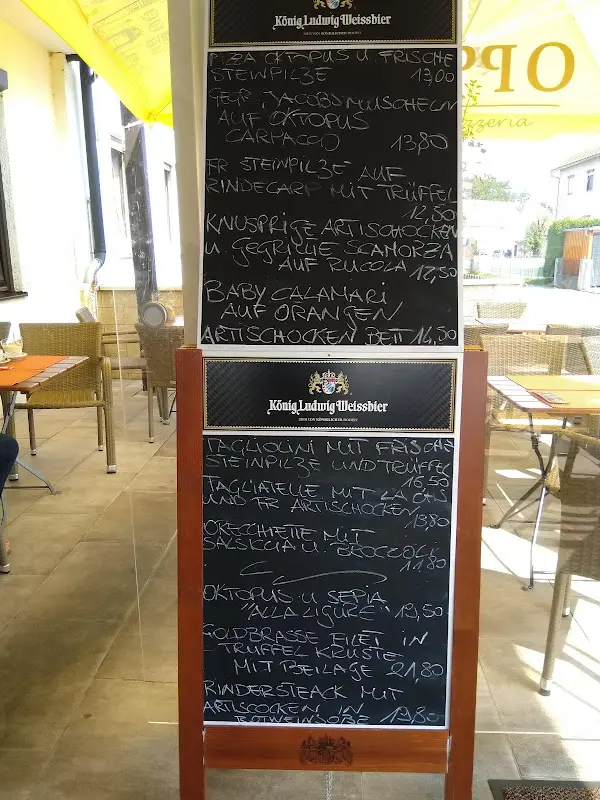 König Ludwig Weissbier
BIER VON KÖNIGLICHER HOHEIT
PIZZA OKTOPUS U. FRISCHE
STEINPILZE 13,00
GEGR. JACOBSMUSCHELN
AUF OKTOPUS
CARPACCIO 13,80
FR STEINPILZE AUF
RINDECARP MIT TRÜFFEL
12,80
KNUSPRIGE ARTISCHOCKEN
U. GEGRILLTE SCAMORZA
AUF RUCOLA 12,50
BABY CALAMARI
AUF ORANGEN
ARTISCHOCKEN BETT 14,50
König Ludwig Weissbier
BIER VON KÖNIGLICHER HOHEIT
TAGLIOLINI MIT FRISCHE
STEINPILZE UND TRÜFFEL
16,50
TAGLIATELLE MIT LACHS
UND FR ARTISCHOCKEN
13,80
ORECCHIETTE MIT
SALSICCIA U. BROCCOLI
11,80
OKTOPUS U SEPIA
"ALLA LIGURE" 19,50
GOLDBRASSE FILET IN
TRÜFFEL KRUSTE
MIT BEILAGE 21,80
RINDERSTEACK MIT
ARTISCOCKEN IN
ROTWEINSOßE 19,80
OPP
zzeria